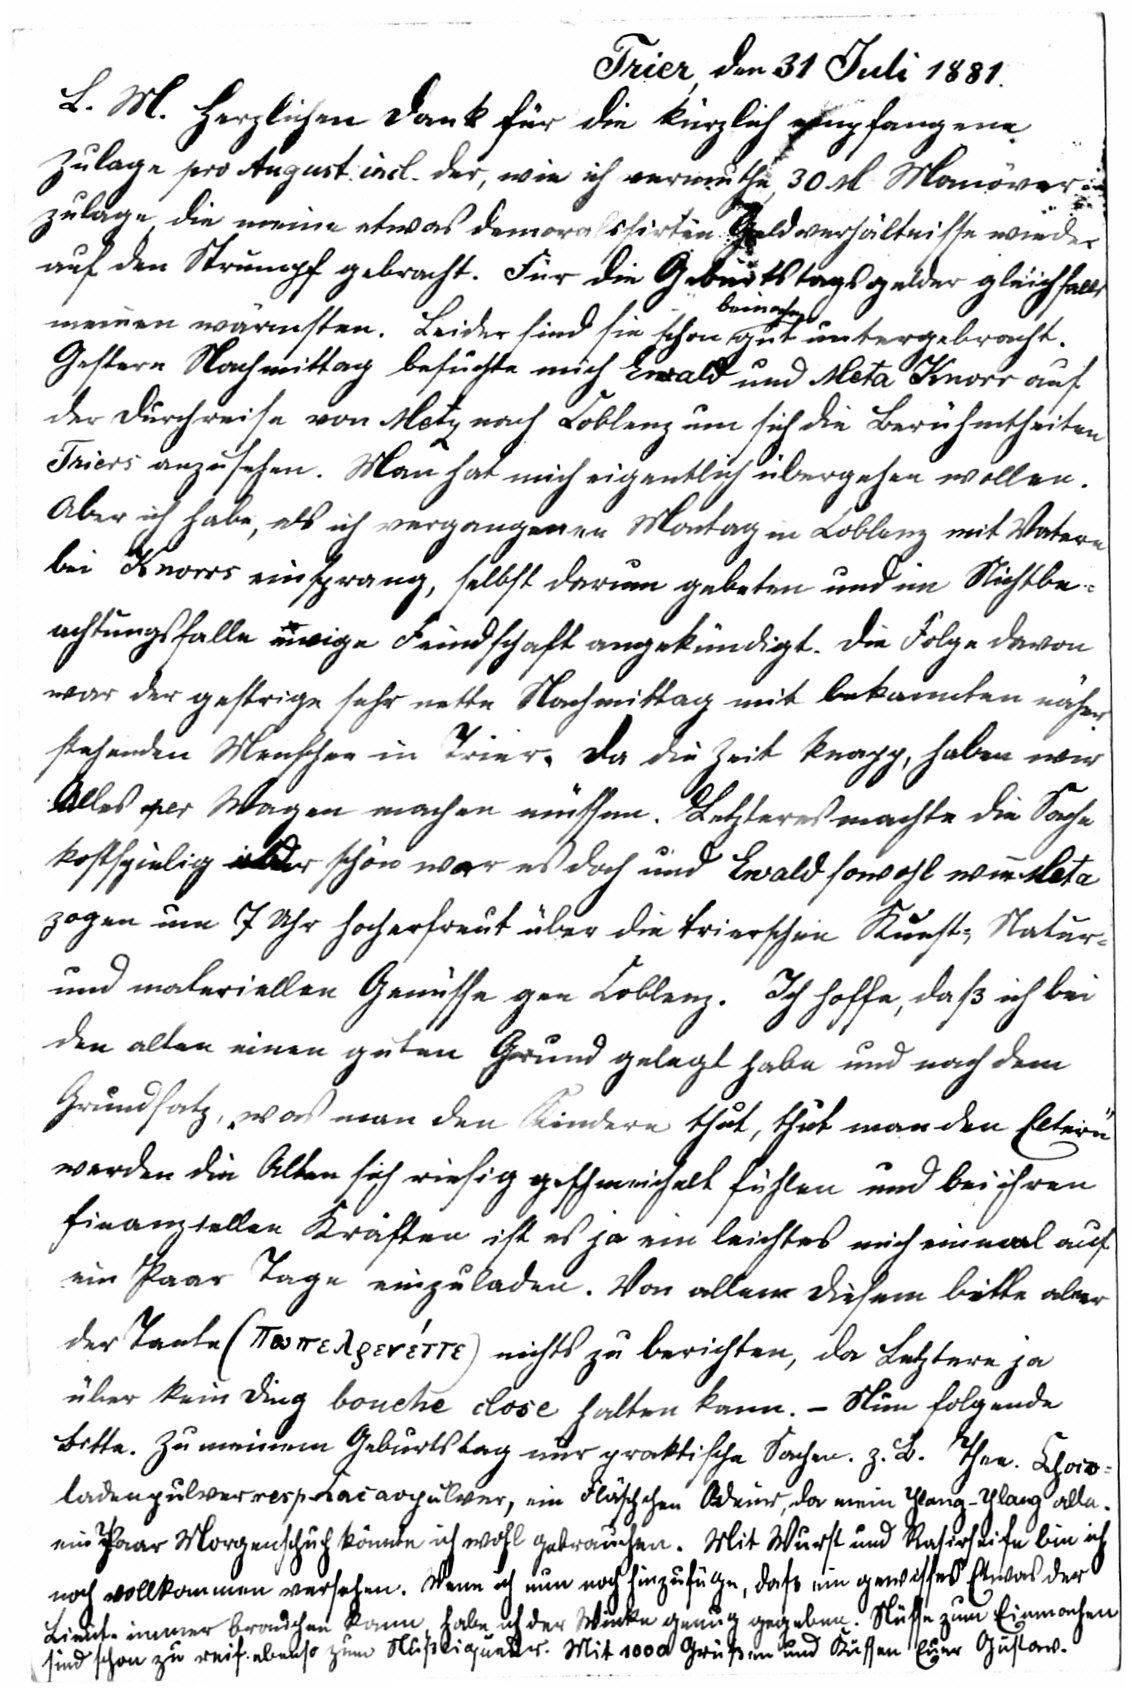 Trier, den 31 Juli 1881.
L. M. Herzlichen Dank für die kürzlich empfangene
Zulage pro August incl. der, wie ich vermuthe, 30 M Manöver
zulage, die meine etwas demoralisirten Geldverhältnisse wieder
auf den Strumpf gebracht. Für die Geburtstagsgelder gleichfalls
meinen wärmsten. Leider sind sie schon beinahe gut untergebracht.
Gestern Nachmittag besuchte mich Ewald und Meta Knorr auf
der Durchreise von Metz nach Coblenz um sich die Berühmtheiten
Triers anzusehen. Man hat mich eigentlich übergehen wollen.
Aber ich habe, als ich vergangenen Montag in Coblenz mit Vatern
bei Knorrs einsprang, selbst darum gebeten und im Nichtbe-
achtungsfalle ewige Feindschaft angekündigt. Die Folge davon
war der gestrige sehr nette Nachmittag mit bekannten näher
stehenden Menschen in Trier. Da die Zeit knapp, haben wir
Alles per Wagen machen müssen. Letzteres machte die Sache
kostspielig aber schön war es doch und Ewald sowohl wie Meta
zogen um 7 Uhr hocherfreut über die trierschen Kunst-, Natur-
und materiellen Genüsse gen Coblenz. Ich hoffe, daß ich bei
den alten einen guten Grund gelegt habe und nach dem
Grundsatz, „was man den Kindern thut, thut man den Eltern"
werden die Alten sich riesig geschmeichelt fühlen und bei ihren
finanziellen Kräften ist es ja ein leichtes mich einmal auf
ein Paar Tage einzuladen. Von allem diesem bitte aber
der Tante (Πωπελρενέττε) nichts zu berichten, da Letztere ja
über kein Ding bouche close halten kann. – Nun folgende
Bitte. Zu meinem Geburtstag nur praktische Sachen. z. B. Thee. Choco-
ladenpulver resp. Cacaopulver, ein Fläschchen Odeur, da mein Ylang-Ylang alle.
ein Paar Morgenschuh könnte ich wohl gebrauchen. Mit Wurst und Rasirseife bin ich
noch vollkommen versehen. Wenn ich nun noch hinzufüge, daß ein gewisses Etwas der
Lieut. immer brauchen kann, habe ich der Winke genug gegeben. Nüsse zum Einmachen
sind schon zu reif. ebenso zum Nußliqueur. Mit 1000 Grüßen und Küssen Euer Gustav.